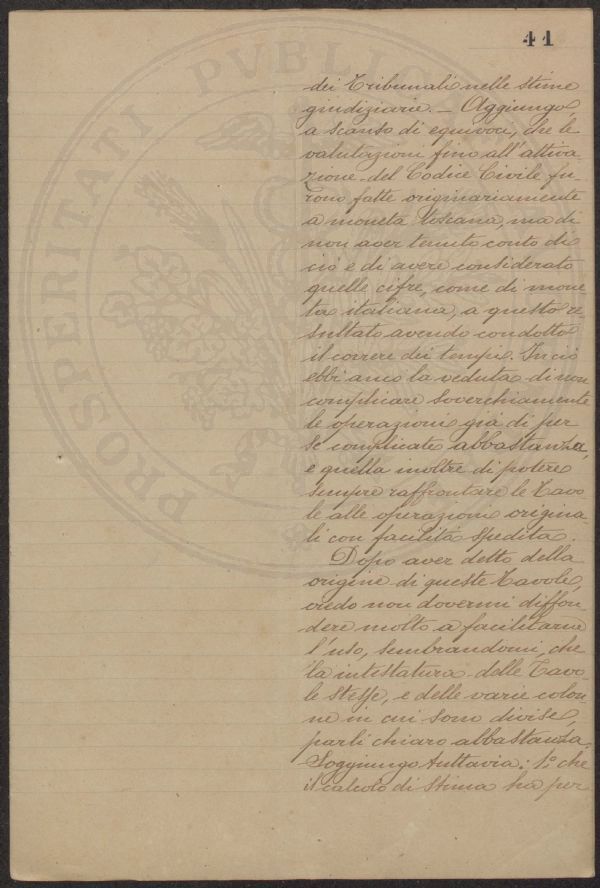 41
dei Tribunali nelle stime
giudiziarie. – Aggiungo,
a scanso di equivoci, che le
valutazioni fino all'attiva-
zione del Codice Civile fu-
rono fatte originariamente
a moneta toscana, ma di
non aver tenuto conto di
ciò e di avere considerato
quelle cifre, come di mone
ta italiana, a questo re
sultato avendo condotto
il correre dei tempi. In ciò
ebbi anco la veduta di non
complicare soverchiamente
le operazioni già di per
se complicate abbastanza,
e quella inoltre di potere
sempre raffrontare le Tavo
le alle operazioni origina-
li con facilità spedita.
Dopo aver detto della
origine di queste Tavole,
credo non dovermi diffon-
dere molto a facilitarne
l'uso, sembrandomi, che
la intestatura delle Tavo-
le stesse, e delle varie colon-
ne in cui sono divise,
parli chiaro abbastanza.
Soggiungo tuttavia: 1º che
il calcolo di stima ha per
PROSPERITATI PVBLICAE